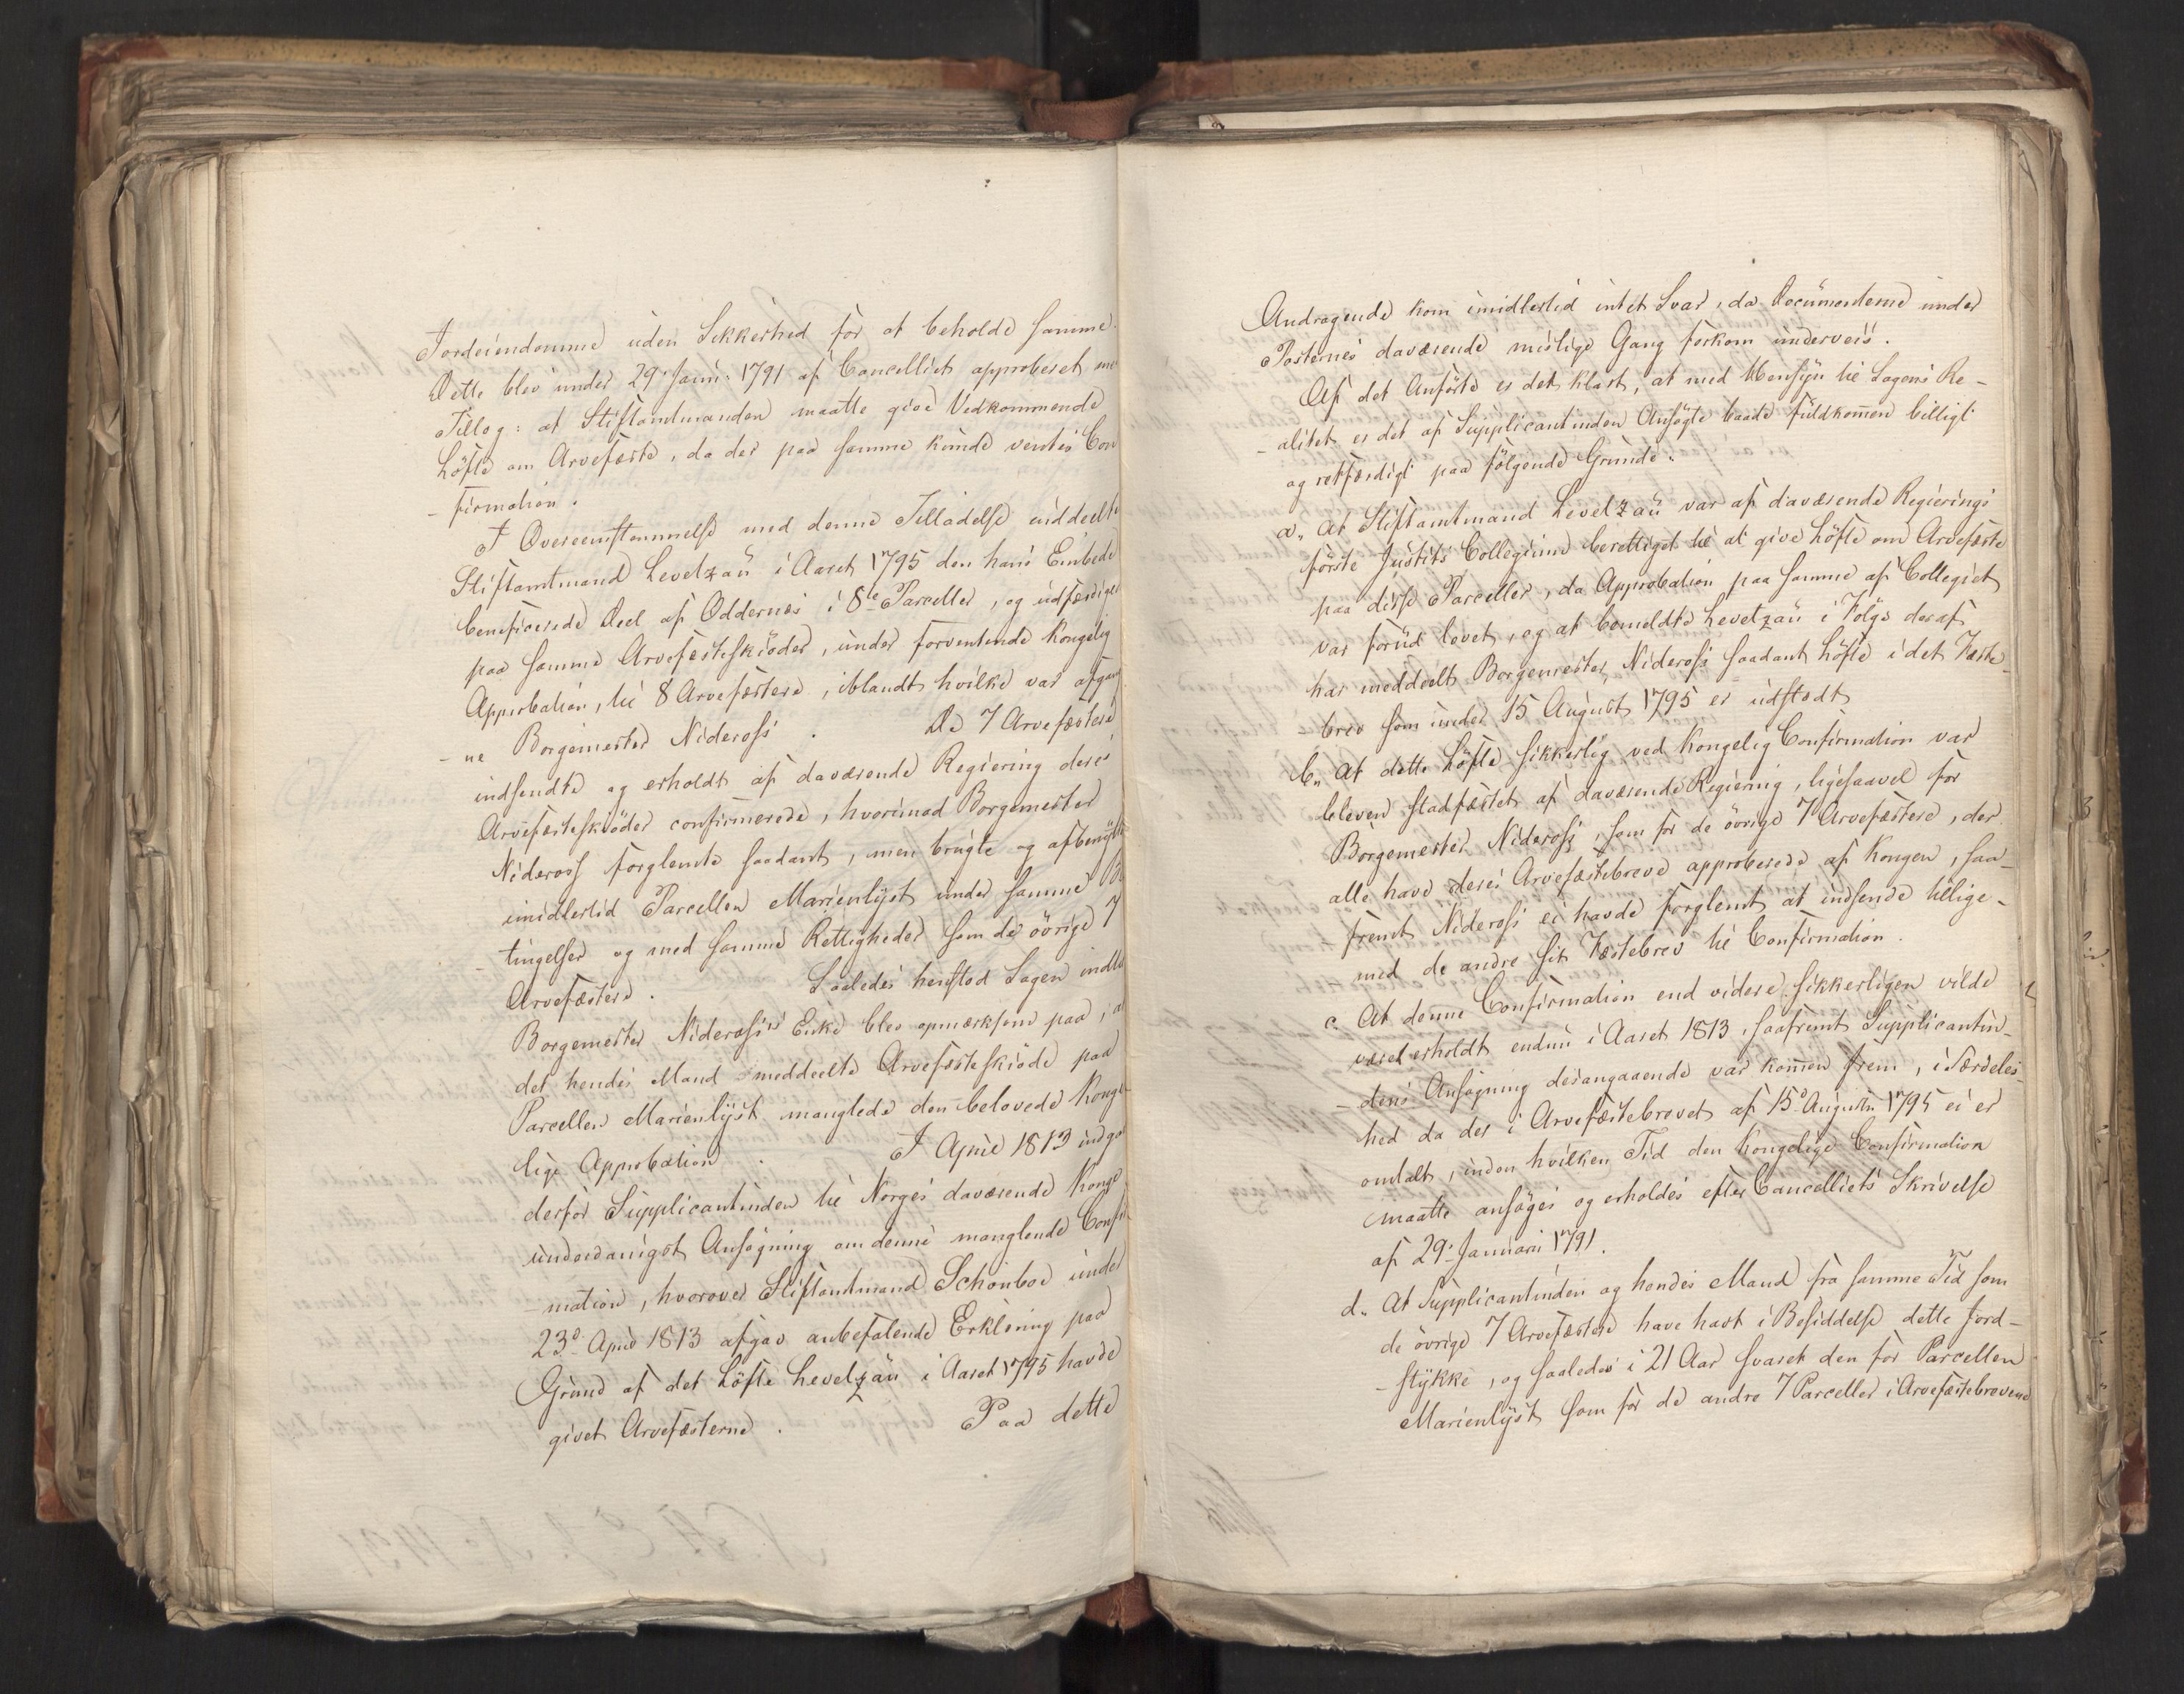 Jordeiendomme uden Sikkerhed for at beholde samme.
Dette blev under 29. Janu: 1791 af Cancelliet approberet med
Tillæg: at Stiftamtmanden maatte give Vedkommende
Löfte om Arvefæste, da der paa samme kunde ventes Con
-firmation.
I Overeenstemmelse med denne Tilladelse uddeelte
Stiftamtmand Levetzau i Aaret 1795 den hans Embede
beneficerede Deel af Oddernes i 8te Parceller, og udfærdiget
paa samme Arvefæsteskiöder, under forventende Kongelig
Approbation, til 8 Arvefæstere, iblandt hvilke var afgang
-ne Borgemester Nideross. De 7 Arvefæstere
indsendte og erholdt af daværende Regiering deres
Arvefæsteskiöder confirmerede, hvorimod Borgemester
Nideross forglemte saadant, men brugte og afbenyttede
imidlertid Parcellen Marienlyst under samme Be
-tingelser og med samme Rettigheder som de övrige 7
Arvefæstere. Saaledes henstod Sagen indtil
Borgemester Nideross's Enke blev opmærksom paa, at
det hendes Mand meddeelte Arvefæsteskiöde paa
Parcellen Marienlyst manglede den belovede Konge
lige Approbation. I April 1813 indgav
derfor Supplicantinden til Norges daværende Konge
underdanigst Ansøgning om denne manglende Confir
-mation, hvorover Stiftamtmand Schönboe under
23d April 1813 afgav anbefalende Erklæring paa
Grund af det Löfte Levetzau i Aaret 1795 havde
givet Arvefæsterne. Paa dette
Andragende kom imidlertid intet Svar, da Documenterne under
Posternes daværende mislige Gang forkom underveis.
Af det Anförte er det klart, at med Hensyn til Sagens Re-
-alitet er det af Supplicantinden Ansøgte baade fuldkommen billigt
og retfærdigt paa fölgende Grunde:
a, At Stiftamtmand Levetzau var af daværende Regierings
förste Justits Collegium berettiget til at give Löfte om Arvefæste
paa disse Parceller, da Approbation paa samme af Collegiet
var forud lovet, og at bemeldte Levetzau i Fölge deraf
har meddeelt Borgemester Nideross saadant Löfte i det Fæste-
brev som under 15 August 1795 er udstædt
b, At dette Löfte sikkerlig ved Kongelig Confirmation var
bleven stadfæstet af daværende Regiering, ligesaavel for
Borgemester Nideross, som for de övrige 7 Arvefæstere, der
alle have deres Arvefæstebreve approberede af Kongen, saa-
-fremt Nideross ei havde forglemt at indsende tillige-
med de andre sit Fæstebrev til Confirmation.
c. At denne Confirmation end videre sikkerligen vilde
været erholdt endnu i Aaret 1813, saafremt Supplicantin-
-dens Ansøgning desangaaende var kommen frem, i Særdeles-
hed da der i Arvefæstebrevet af 15d August 1795 ei er
omtalt, inden hvilken Tid den Kongelige Confirmation
maatte ansøges og erholdes efter Cancelliets Skrivelse
af 29. Januari 1791.
d. At Supplicantinden og hendes Mand fra samme Tid som
de övrige 7 Arvefæstere have havt i Besiddelse dette Jord-
-stykke, og saaledes i 21 Aar svaret den for Parcellen
Marienlyst som for de andre 7 Parceller i Arvefæstebrevene